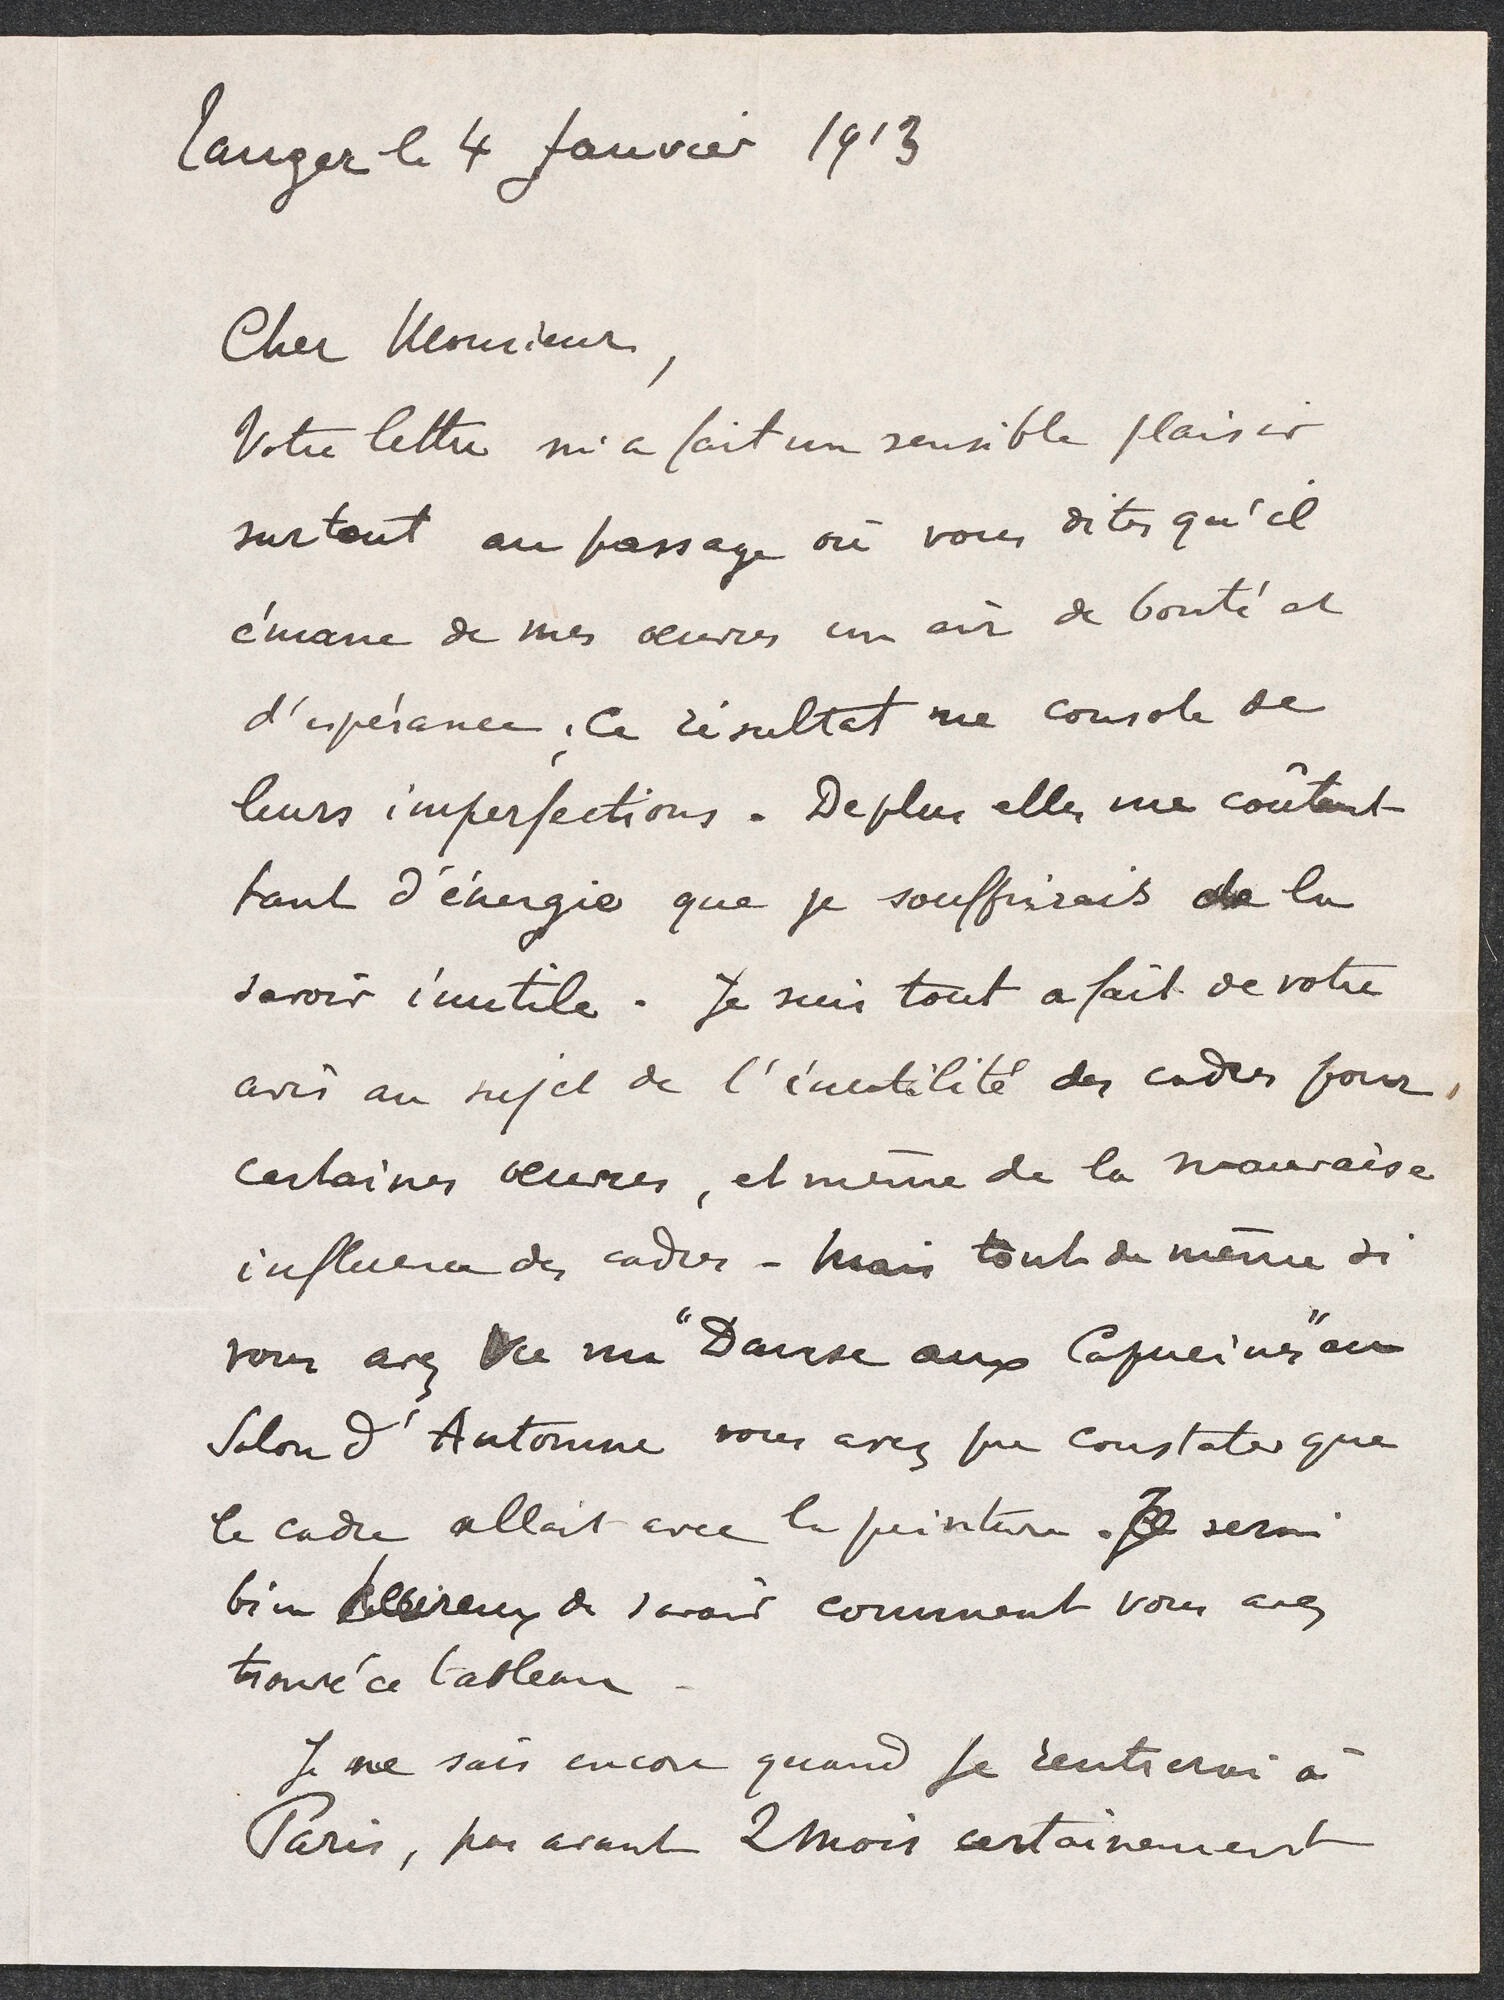 Tanger le 4 Janvier 1913
Cher Monsieur,
Votre lettre m'a fait un sensible plaisir
surtout au passage où vous dites qu'il
émane de mes œuvres un air de bonté et
d'espérance ; Ce résultat me console de
leurs imperfections. De plus elles me coûtent
tant d'énergie que je souffrirais de la
savoir inutile. Je suis tout a fait de votre
avis au sujet de l'inutilité des cadres pour
certaines œuvres, et même de la mauvaise
influence des cadres - Mais tout de même si
vous avez vu ma "Danse aux Capucines" au
Salon d'Automne vous avez pu constater que
le cadre allait avec la peinture. Je serai
bien heureux de savoir comment vous avez
trouvé ce tableau -
Je ne sais encore quand je rentrerai à
Paris, pas avant 2 mois certainement